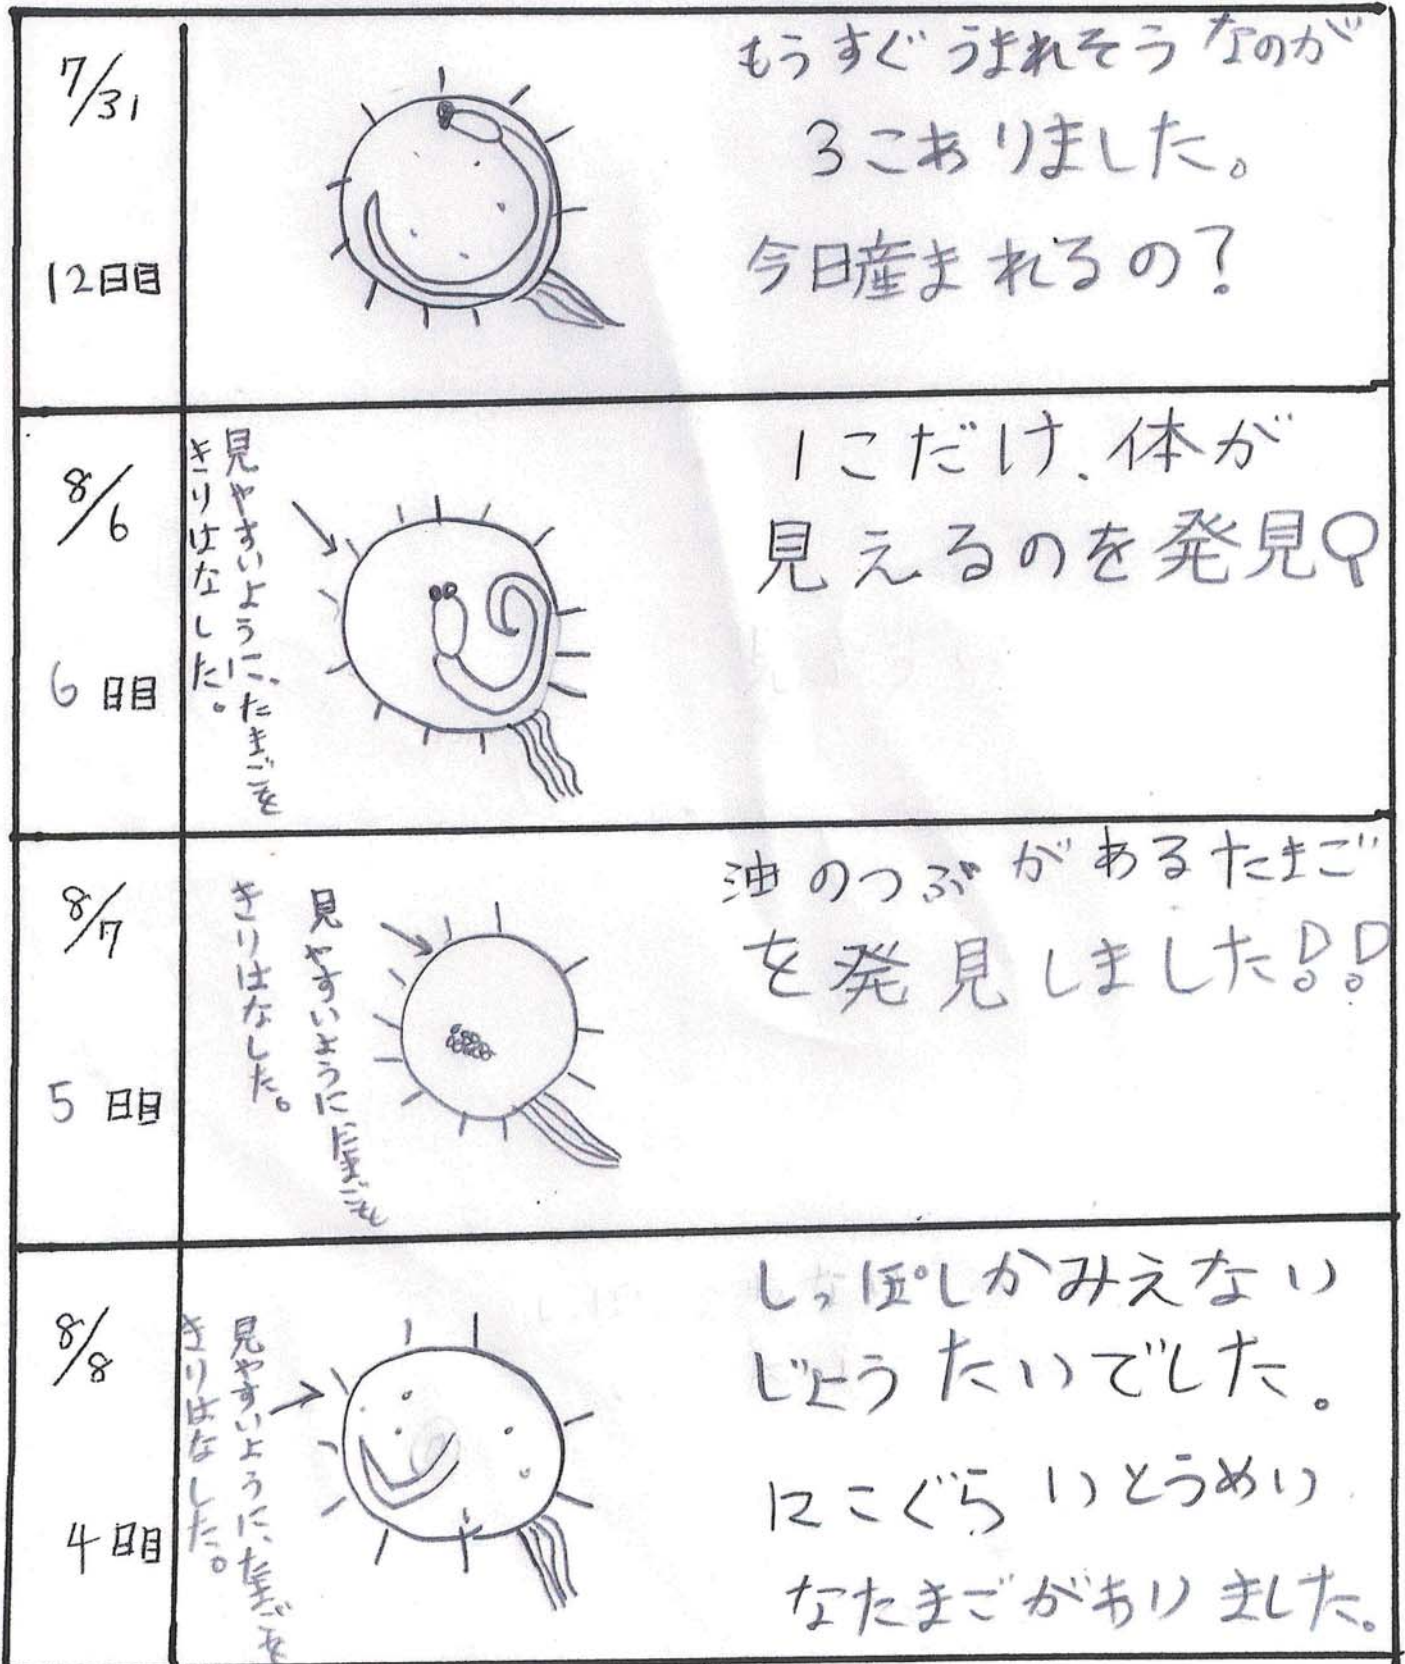 7/31
12日目
もうすぐうまれそうなのが
3こありました。
今日産まれるの?
8/6
6日目
見やすいように、たまごを
きりはなした。
1こだけ、体が
見えるのを発見!
8/7
5日目
見やすいようにたまごを
きりはなした。
油のつぶがあるたまご
を発見しました!!
8/8
4日目
見やすいように、たまごを
きりはなした。
しっぽしかみえない
じょうたいでした。
12こぐらいとうめい
なたまごがありました。